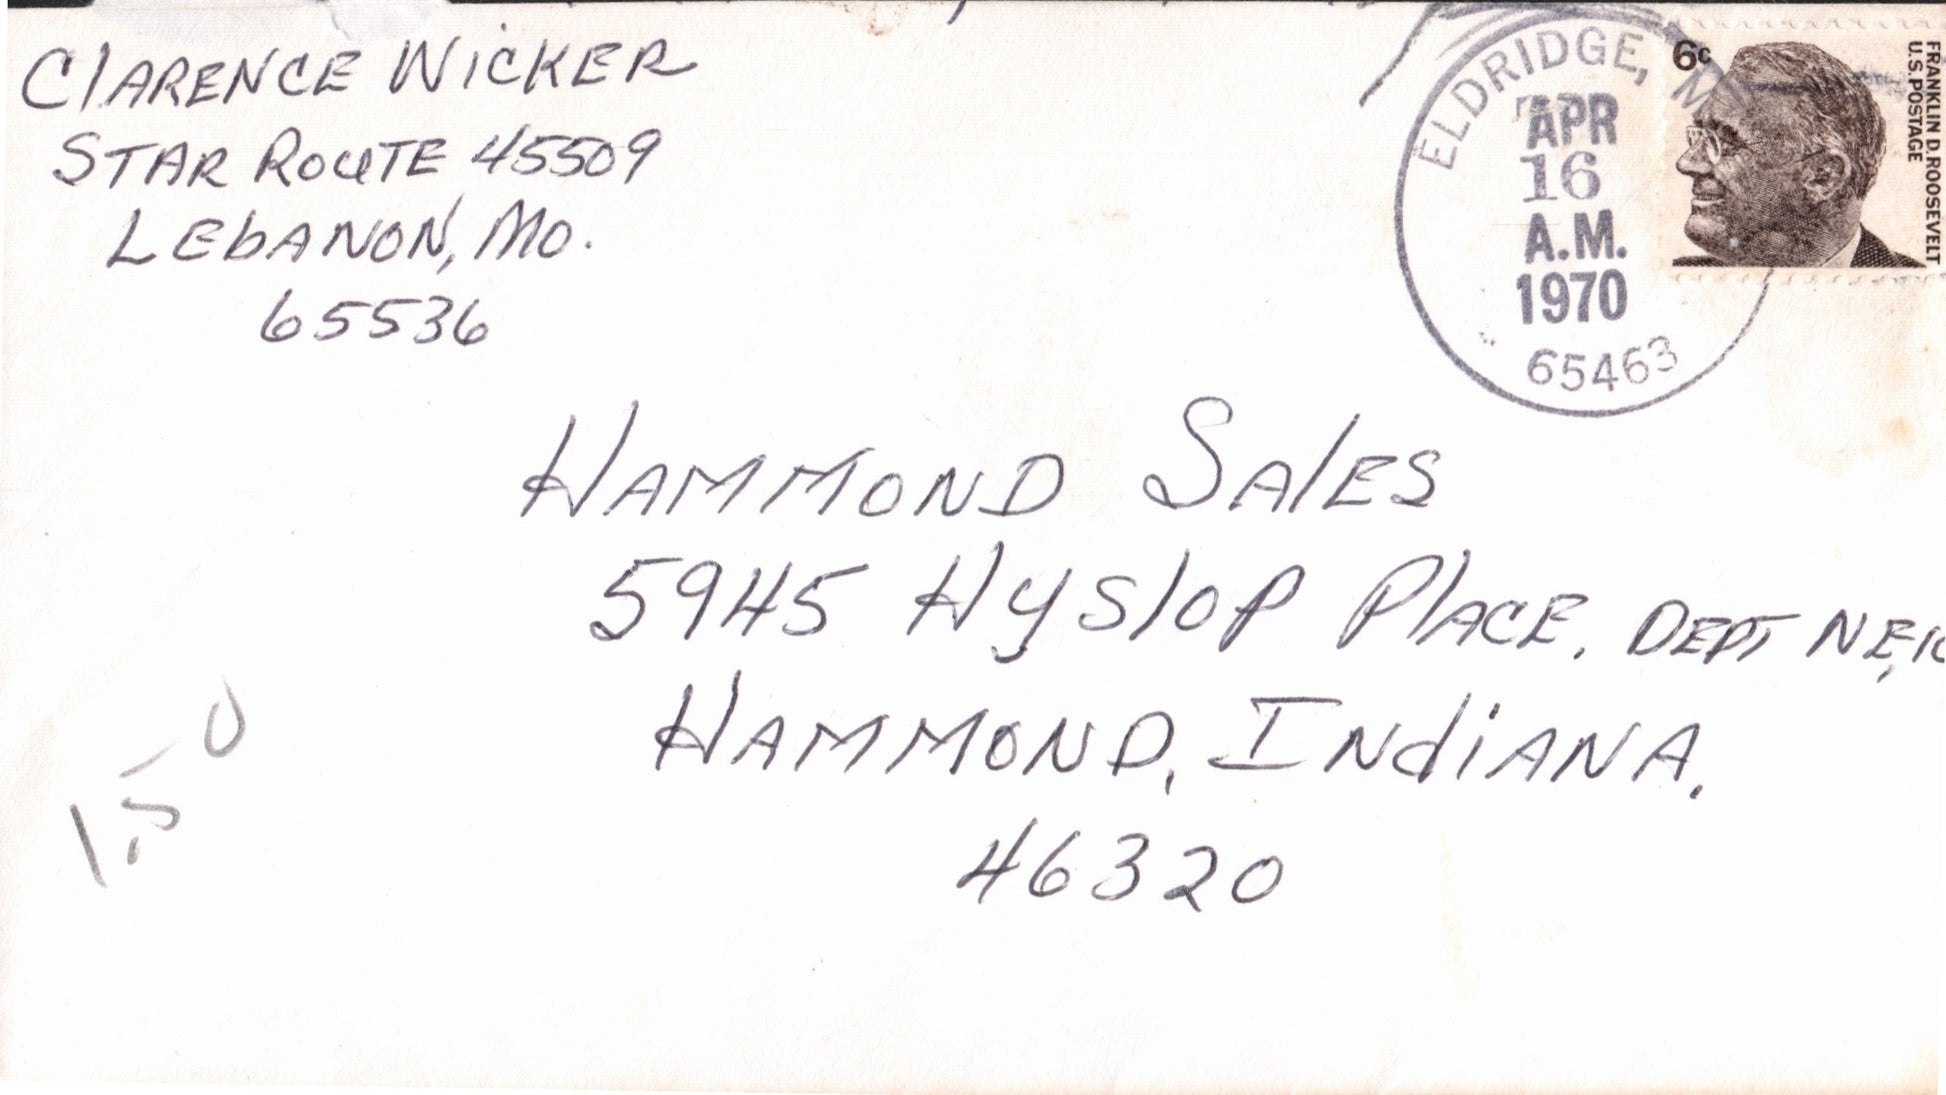 Clarence Wicker
Star Route 45509
Lebanon, Mo.
65536
ELDRIDGE, M
APR
16
A.M.
1970
65463
6c
FRANKLIN D. ROOSEVELT
U.S. POSTAGE
Hammond Sales
5945 Hyslop Place, Dept NE,
Hammond, Indiana.
46320
1.50